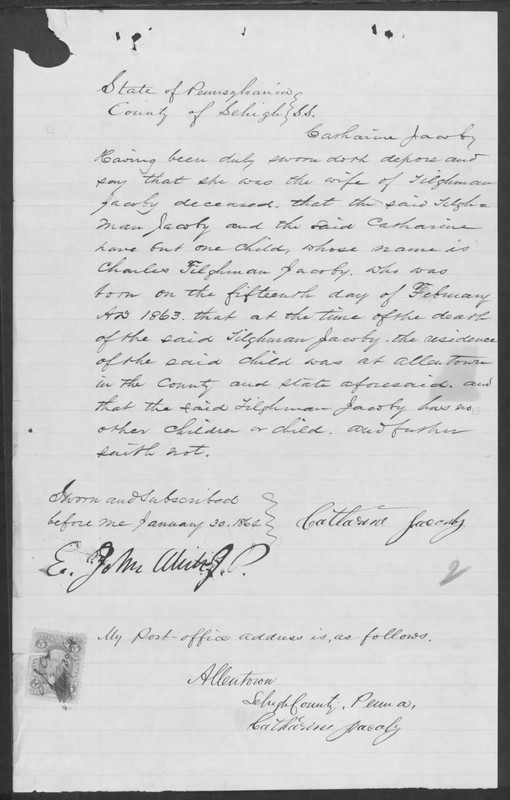 State of Pennsylvania
County of Lehigh } SS.
Catharine Jacoby
Having been duly sworn doth depose and
say that she was the wife of Tilghman
Jacoby deceased. that the said Tilgh=
man Jacoby and the said Catharine
have but one child, whose name is
Charles Tilghman Jacoby. who was
born on the fifteenth day of February
AD 1863. that at the time of the death
of the said Tilghman Jacoby. the residence
of the said child was at Allentown
in the County and state aforesaid. and
that the said Tilghman Jacoby has no
other children or child. and further
saith not.
Sworn and subscribed
before me January 30. 186
Catharine Jacoby
E. John J.P.
2
My Post-office address is, as follows.
Allentown
Lehigh County. Penna,
Catharine Jacoby